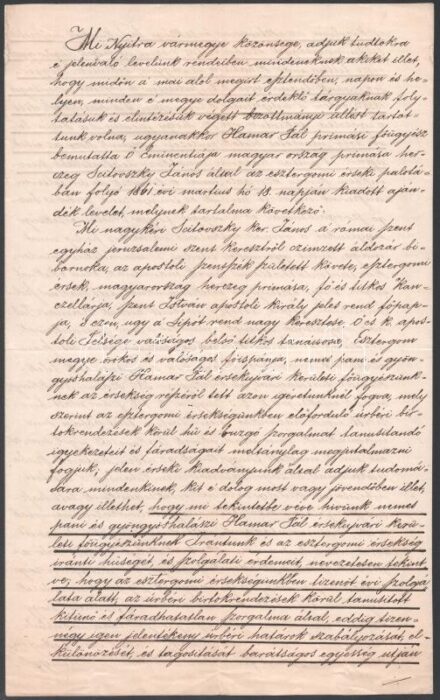 Mi Nyitra vármegye közönsége, adjuk tudtokra
e jelenvaló levelünk rendeiben mindeneknek akiket illet,
hogy midőn a mai alól megirt esztendőben, napon és he-
lyen, minden e megye dolgait érdeklő tárgyaknak foly-
tatásuk és elintézésük végett bizottmányi ülést tartot-
tunk volna, ugyanakkor Hamar Pál primási főügyész
bemutatta Ő Eminentiája magyar ország primása her-
czeg Scitovszky János által az esztergomi érseki palotá-
ban folyó 1861 évi martius hó 18. napján kiadott aján-
dék levelet, melynek tartalma következő:
Mi nagykéri Scitovszky ker. János a római szent
egyház jeruzsalemi szent keresztről czimzett áldozár bi-
bornoka, az apostoli szentszék született követe, esztergomi
érsek, magyarország herczeg primása, fő és titkos kan-
czellárja, szent István apostoli király jeles rend főpap-
ja, s ezen, ugy a Lipót rend nagy keresztese, Ő cs k. apos-
toli Felsége valóságos belső titkos tanácsosa, Esztergom
megye örökös és valóságos főispánja, nemes pani és gyön-
gyöshalászi Hamar Pál érsekujvári kerületi főügyészünk-
nek az érsekség részéről tett azon igéretünknél fogva, mely
szerint az esztergomi érsekségünkben előforduló urbéri bir-
tokrendezések körül hű és buzgó szorgalmat tanusitandó
igyekezeteit és fáradságait méltánylag megjutalmazni
fogjuk; jelen érseki kiadványunk által adjuk tudomá-
sára mindenkinek, kit e dolog most vagy jövendőben illet,
avagy illethet, hogy mi tekintetbe véve hivünk nemes
pani és gyöngyöshalászi Hamar Pál érsekujvári kerü-
leti főügyészünknek Irántunk és az esztergomi érsekség
iránti hűségét, és szolgálati érdemeit, nevezetesen tekint-
ve, hogy az esztergomi érsekségünkben tizenöt évi szolgá-
lata alatt, az urbéri birtokrendezések körül tanusitott
kitünő és fáradhatatlan szorgalma által, eddig tizen-
négy igen jelentékeny urbéri határok szabályozását, el-
különözését, és tagositását barátságos egyesség utján